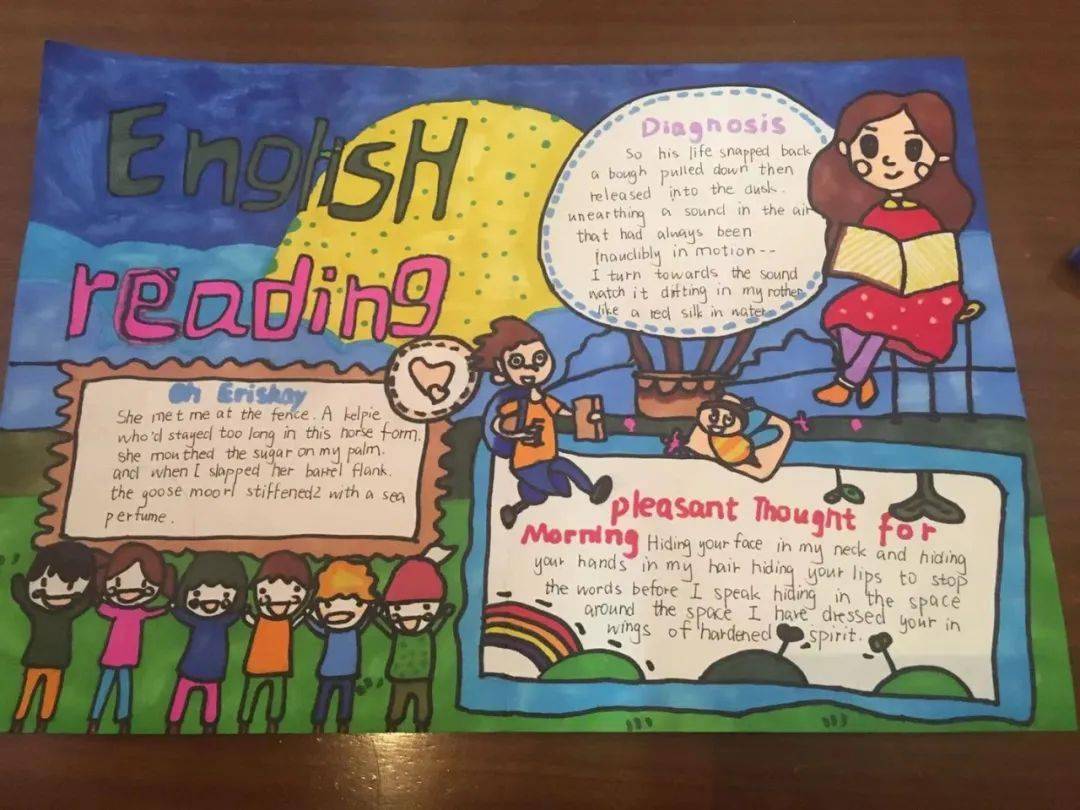 EnglisH
reading
Diagnosis
So his life snapped back
a bough pulled down then
released into the dusk.
unearthing a sound in the air
that had always been
inaudibly in motion--
I turn towards the sound
watch it difting in my rother
like a red silk in water
Oh Eriskay
She met me at the fence. A kelpie
who'd stayed too long in this horse form.
she mouthed the sugar on my palm.
and when I slapped her barrel flank.
the goose moorl stiffened2 with a sea
perfume.
pleasant Thought for
Morning Hiding your face in my neck and hiding
your hands in my hair hiding your lips to stop
the words before I speak hiding in the space
around the space I have dressed your in
wings of hardened spirit.